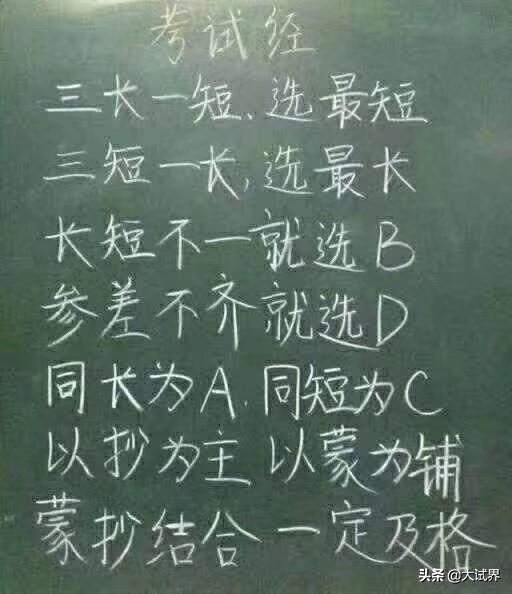 考试经
三长一短、选最短
三短一长,选最长
长短不一就选B
参差不齐就选D
同长为A.同短为C
以抄为主 以蒙为铺
蒙抄结合 一定及格
头条@大试界